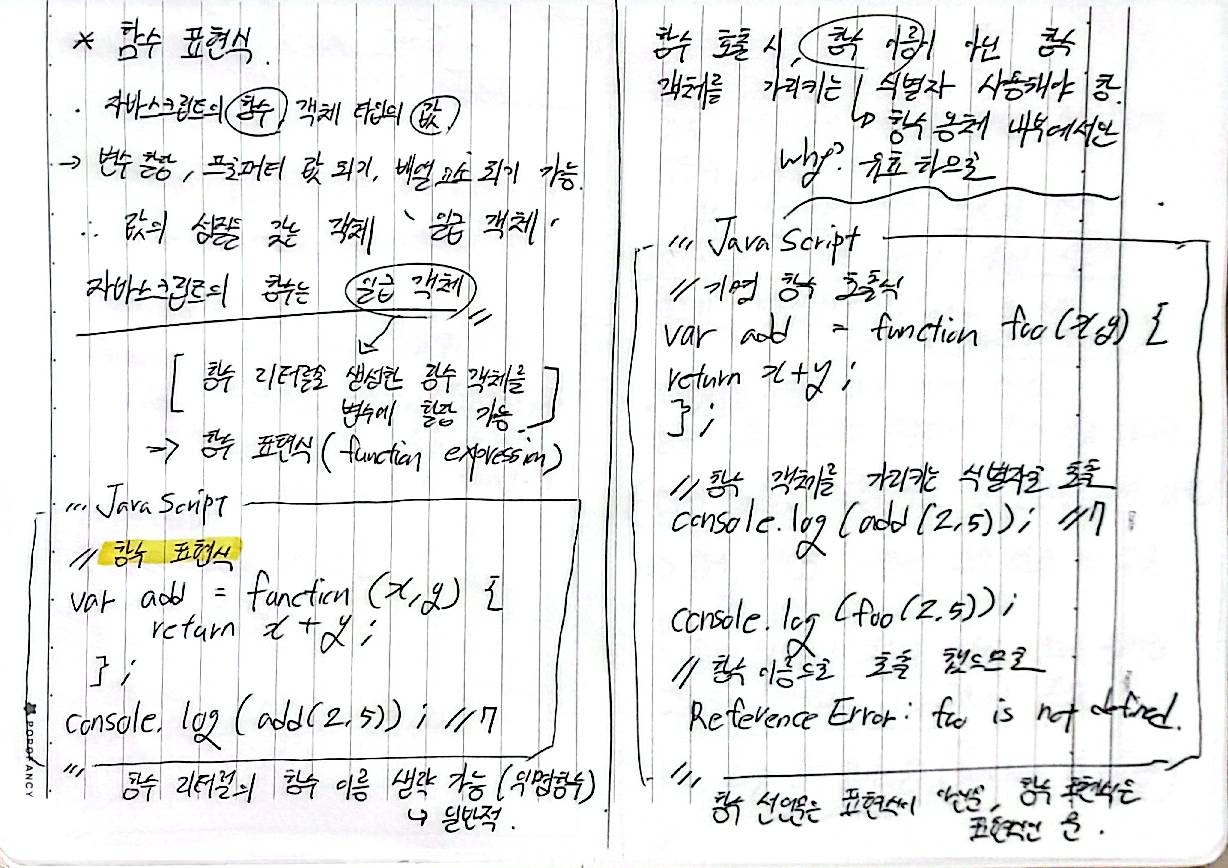 * 함수 표현식.
· 자바스크립트의 함수, 객체 타입의 값.
→ 변수 할당, 프로퍼티 값 되기, 배열 요소 되기 가능.
∴ 값의 성질을 갖는 객체 ` 일급 객체 '
자바스크립트의 함수는 일급 객체 〃
[ 함수 리터럴로 생성한 함수 객체를
변수에 할당 가능. ]
=> 함수 표현식 (function expression)
''' JavaScript
// 함수 표현식
var add = function (x,y) {
return x + y ;
} ;
console. log ( add(2,5)) ; //7
'''
함수 리터럴의 함수 이름 생략 가능 (익명함수)
↳ 일반적.
POPOFANCY
함수 호출 시, 함수 이름이 아닌 함수
객체를 가리키는 식별자 사용해야 함.
↳ 함수 몸체 내부에서만
why? 유효 하므로
''' JavaScript
// 기명 함수 호출식
var add = function foo (x,y) {
return x+y ;
} ;
// 함수 객체를 가리키는 식별자로 호출
console.log (add(2.5)); //7
console.log (foo(2.5));
// 함수 이름으로 호출 했으므로
Reference Error: foo is not defined.
'''
함수 선언문은 표현식이 아닌문, 함수 표현식은
표현식인 문.